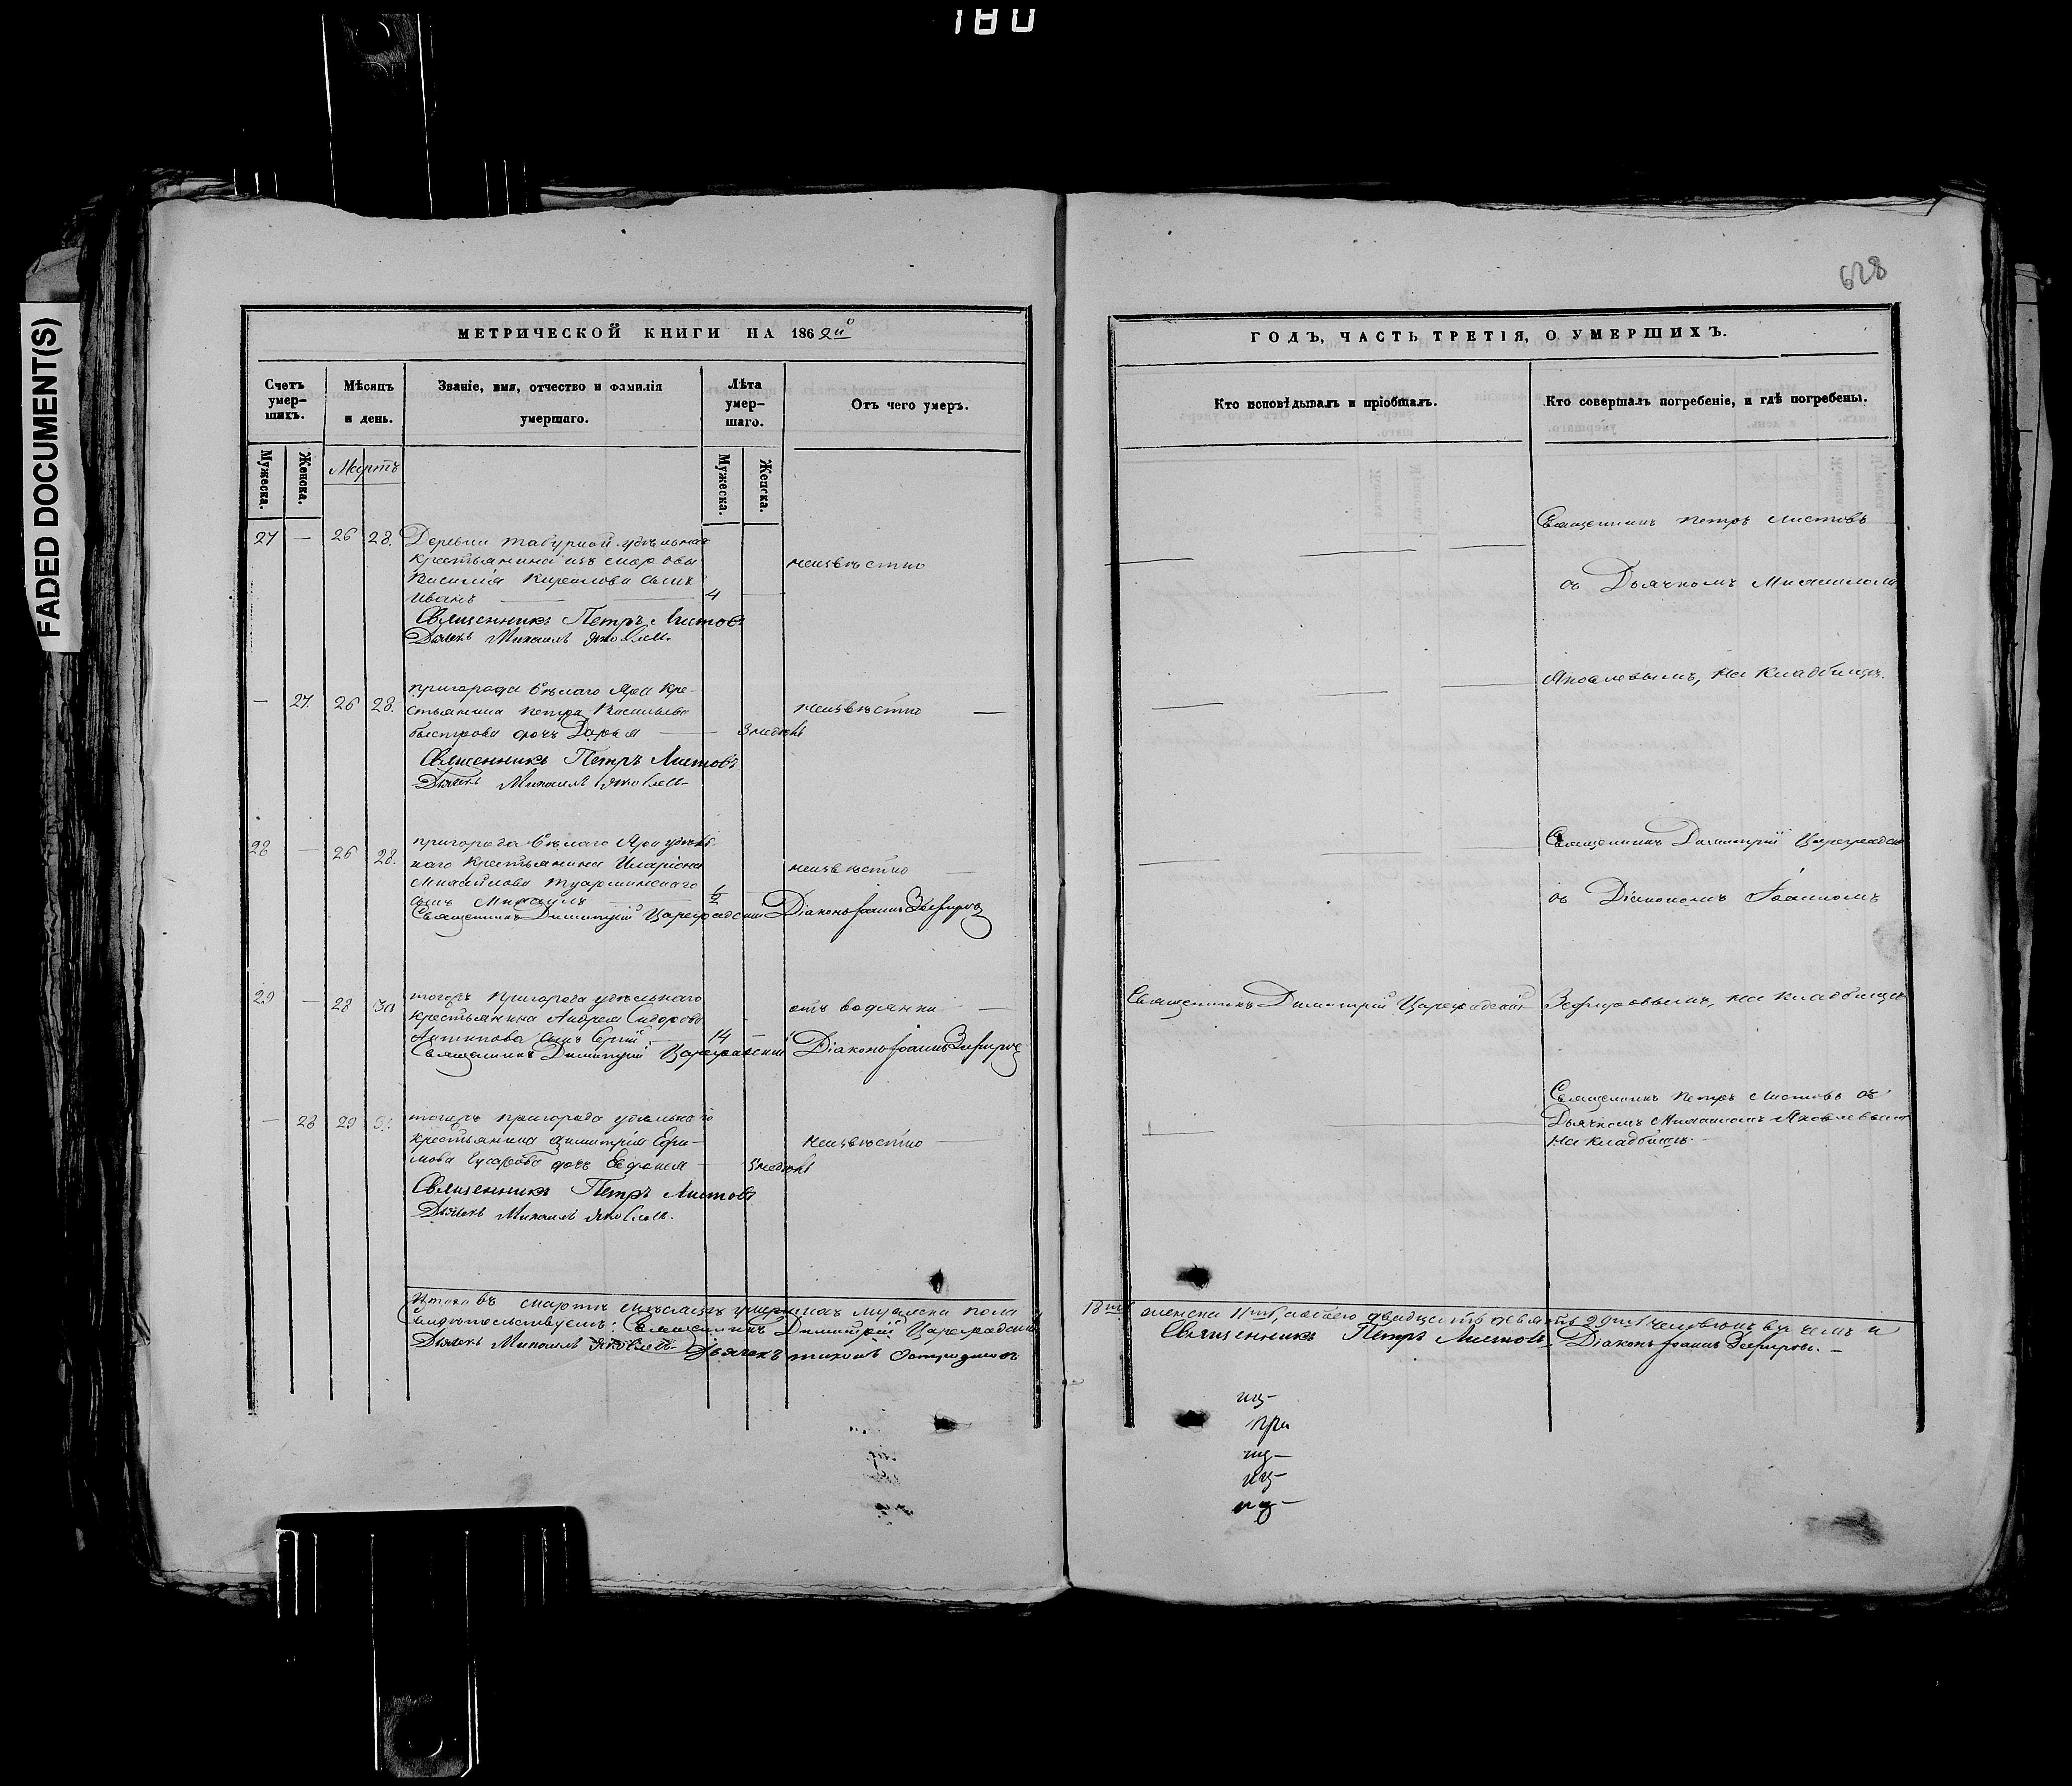 180
FADED DOCUMENT(S)
628
МЕТРИЧЕСКОЙ КНИГИ НА 1862й
Счетъ умер-шихъ.
Мѣсяцъ и день.
Званіе, имя, отчество и фамилія умершаго.
Лѣта умер-шаго.
Отъ чего умеръ.
Мужеска.
Женска.
Мартъ
Мужеска.
Женска.
27 — 26 28. Деревни удѣльнаго
крестьянина изъ мордвы
Василія Кирилова сынъ
Иванъ — 4 — неизвѣстно
Священникъ Петръ Листовъ
Дьячекъ Михаилъ Яковлевъ
— 27. 26 28. пригорода Бѣлаго Яра кре-
стьянина Петра Васильева
Быстрова дочь Дарья — 3 недѣль неизвѣстно —
Священникъ Петръ Листовъ
Дьячекъ Михаилъ Яковлевъ
28 — 26 28. пригорода Бѣлаго Яра удѣль
наго крестьянина Иларіона
Михайлова
сынъ Михаилъ неизвѣстно —
Священникъ Димитрій Цареградскій Діаконъ Іоаннъ Зефировъ
29 — 28 30 тогожъ пригорода удѣльнаго
крестьянина Андрея Сидорова
Антипова сынъ Сергій 14 — отъ водянки —
Священникъ Димитрій Цареградскій Діаконъ Іоаннъ Зефировъ
— 28 29 31. тогожъ пригорода удѣльнаго
крестьянина Димитрія Ефи-
мова дочь Евфимія — 5 недѣль неизвѣстно —
Священникъ Петръ Листовъ
Дьячекъ Михаилъ Яковлевъ.
Итого въ мартѣ мѣсяцѣ умершихъ мужеска пола
свидѣтельствуемъ: Священникъ Димитрій Цареградскій
Дьячекъ Михаилъ Яковлевъ Дьячекъ Тихонъ
ГОДЪ, ЧАСТЬ ТРЕТІЯ, О УМЕРШИХЪ.
Кто исповѣдывалъ и пріобщалъ.
Кто совершалъ погребеніе, и гдѣ погребены.
Священникъ Петръ Листовъ
съ Дьячкомъ Михаиломъ
Яковлевымъ, на кладбищѣ.
Священникъ Димитрій Цареградскій
съ Діакономъ Іоанномъ
Священникъ Димитрій Цареградскій Зефировымъ, на кладбищѣ
Священникъ Петръ Листовъ съ
Дьячкомъ Михаиломъ Яковлевымъ
на кладбищѣ.
18ть женска 11ть, обоего двадцать девять 29ть человѣкъ въ чемъ и
Священникъ Петръ Листовъ Діаконъ Іоаннъ Зефировъ. —